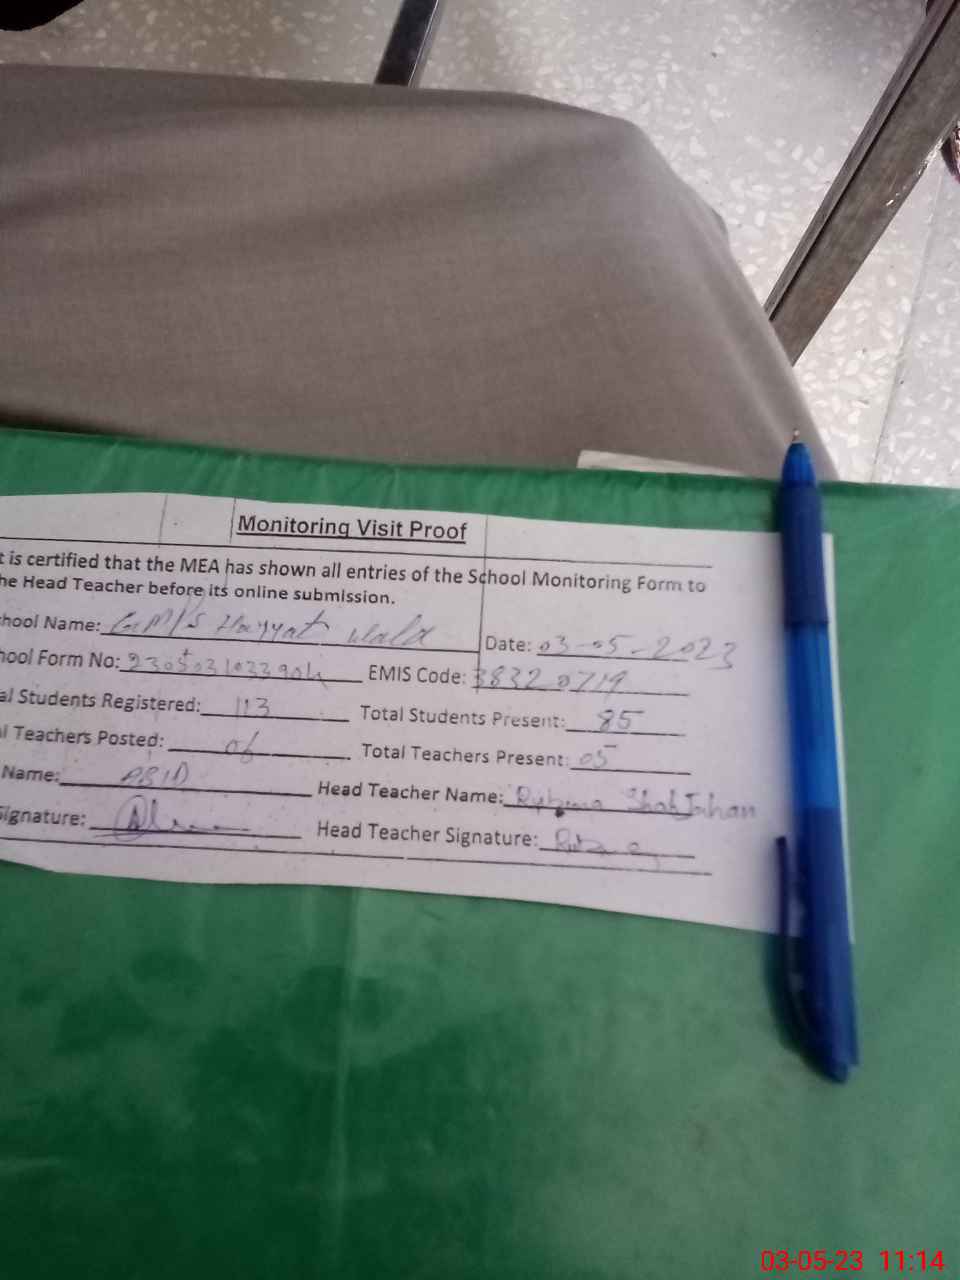 Monitoring Visit Proof
t is certified that the MEA has shown all entries of the School Monitoring Form to
he Head Teacher before its online submission.
chool Name: GMPS Hayyat Wala Date: 03-05-2023
hool Form No: EMIS Code: 38320719
al Students Registered: 113 Total Students Present: 85
l Teachers Posted: 06 Total Teachers Present: 05
Name: ABID Head Teacher Name: Rubina Shah Jahan
ignature: Head Teacher Signature:
03-05-23 11:14